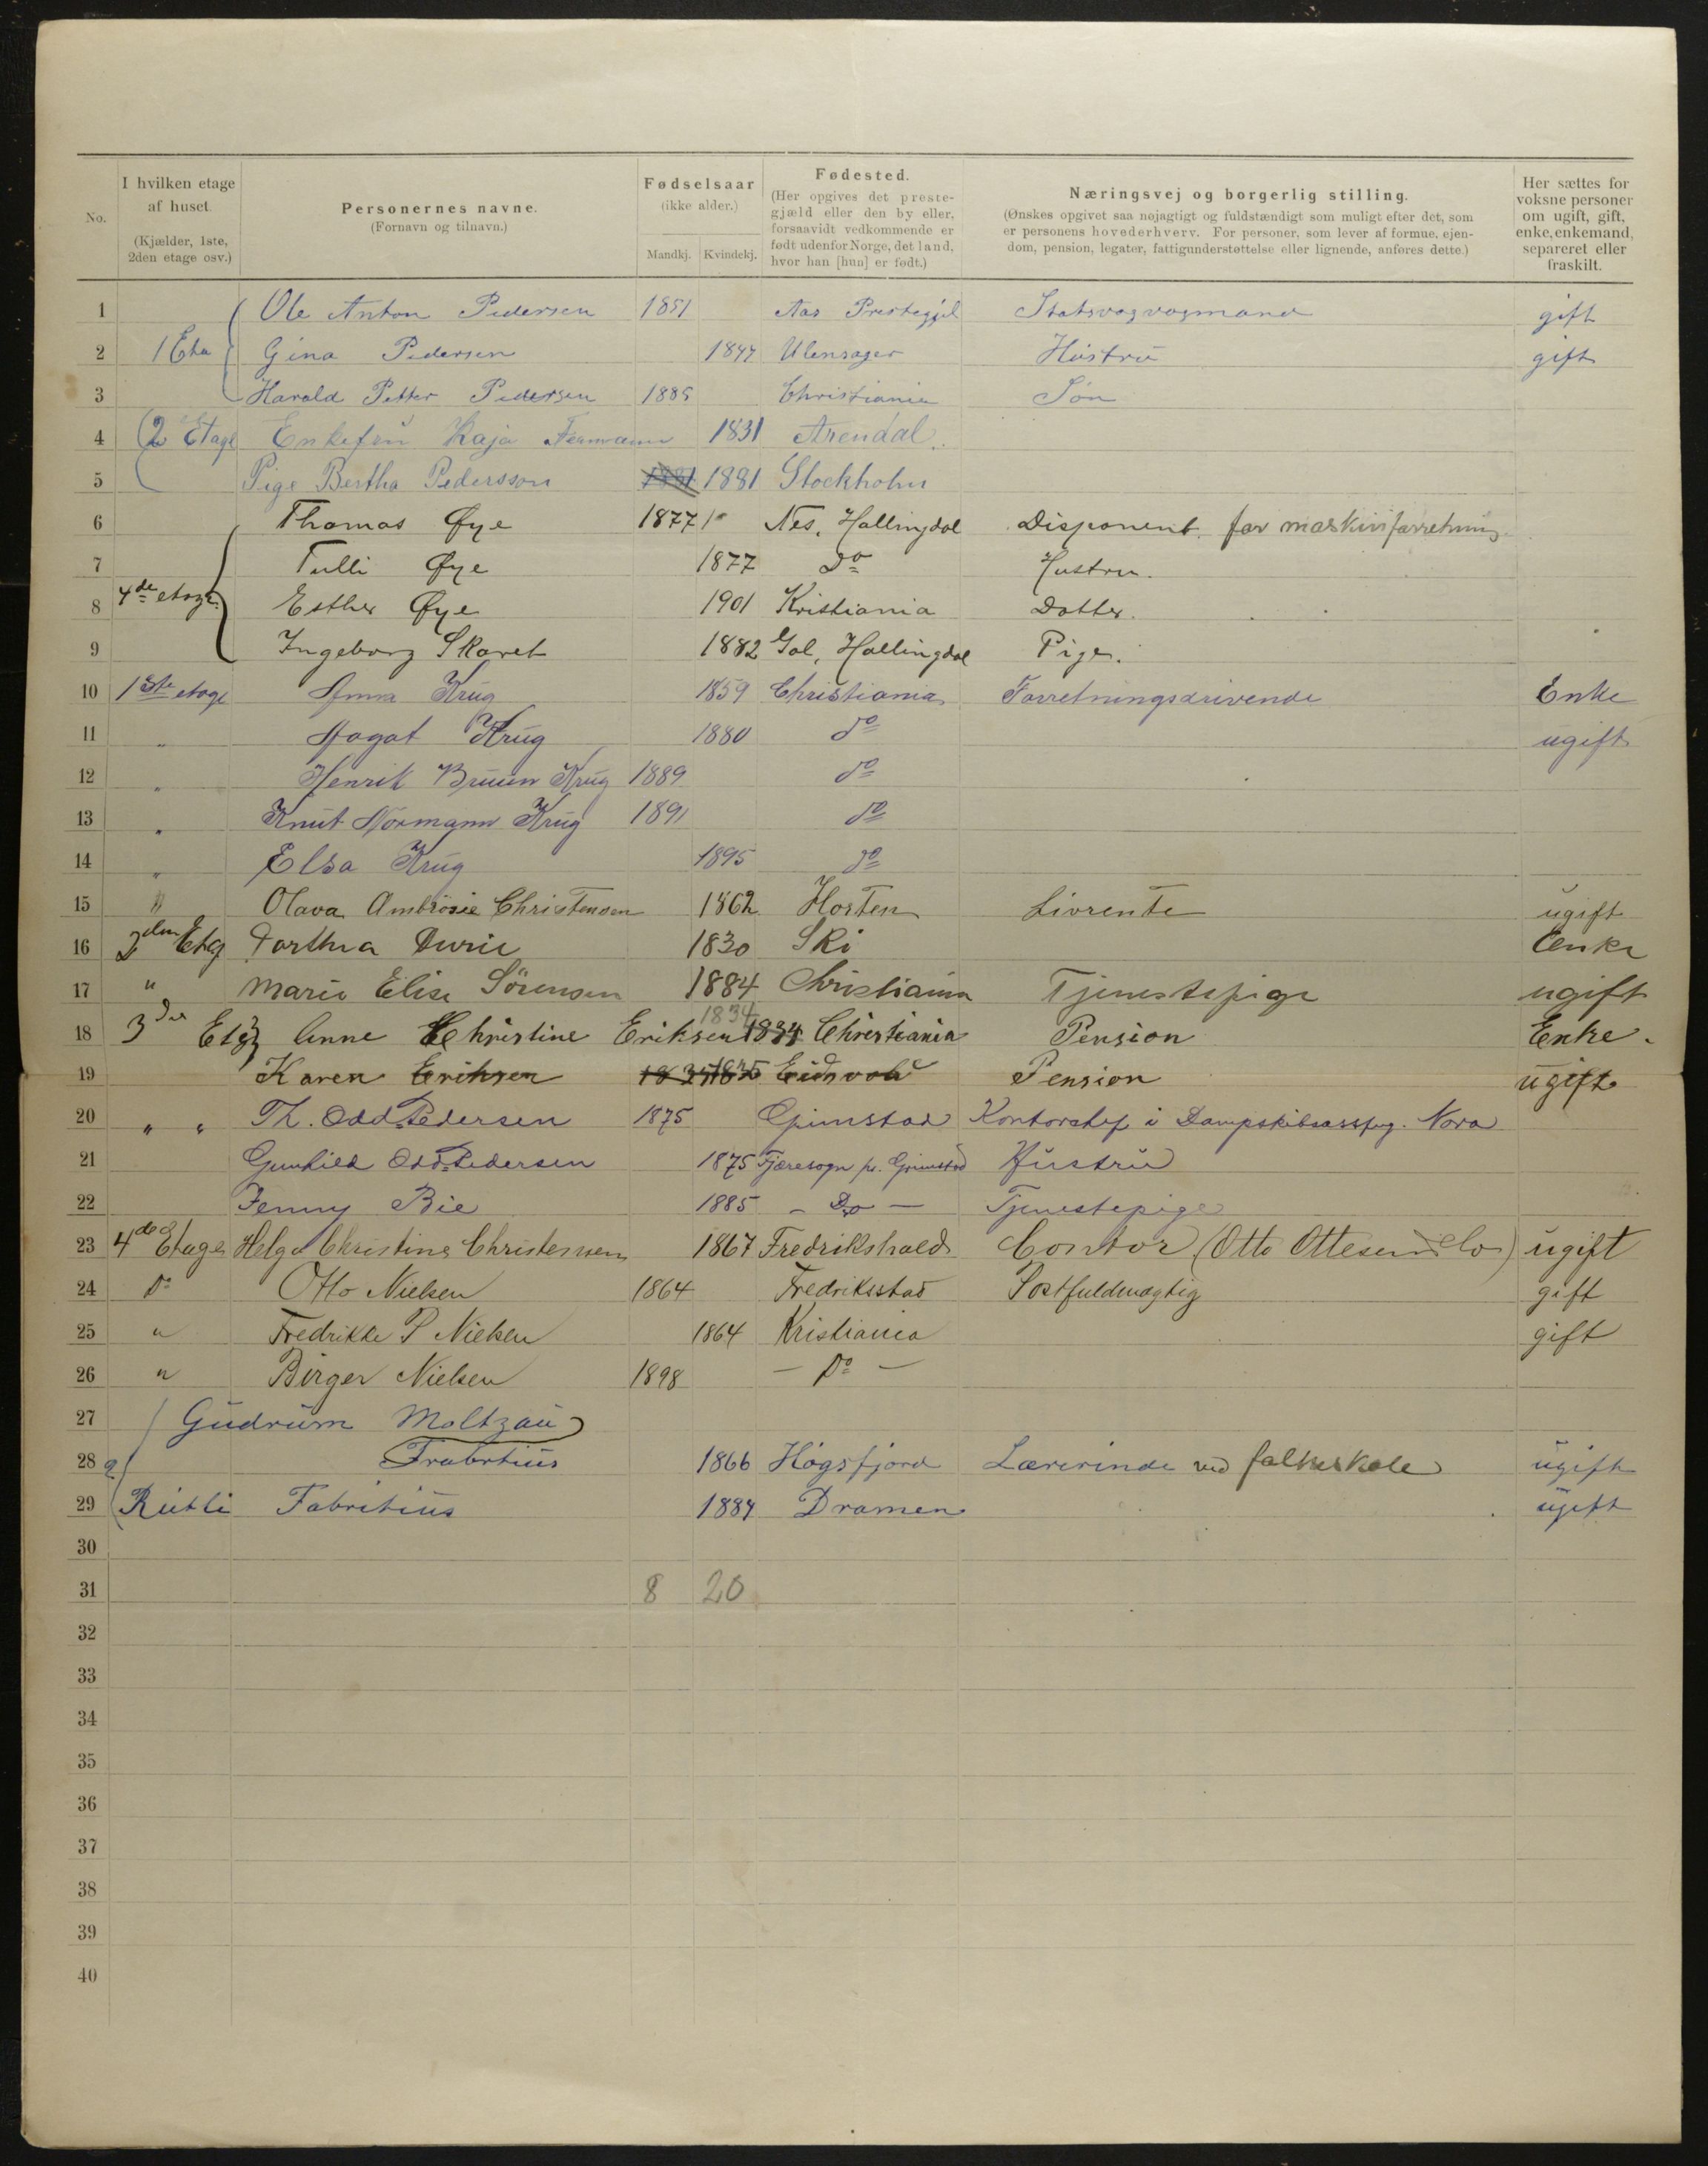 No.
I hvilken etage af huset.
(Kjælder, 1ste, 2den etage osv.)
Personernes navne.
(Fornavn og tilnavn.)
Fødselsaar
(ikke alder.)
Mandkj. Kvindekj.
Fødested.
(Her opgives det prestegjæld eller den by eller, forsaavidt vedkommende er født udenfor Norge, det land, hvor han [hun] er født.)
Næringsvej og borgerlig stilling.
(Ønskes opgivet saa nøjagtigt og fuldstændigt som muligt efter det, som er personens hovederhverv. For personer, som lever af formue, ejendom, pension, legater, fattigunderstøttelse eller lignende, anføres dette.)
Her sættes for voksne personer om ugift, gift, enke, enkemand, separeret eller fraskilt.
1 Ole Anton Pedersen 1851 Aas gift
2 1 Eta Gina Pedersen Ulensager Hustru gift
3 Harald Petter Pedersen Christiania Søn
4 2 Etage Enkefru Kaja 1831 Arendal.
5 Pige Bertha Pedersson 1881 1881 Stockholm
6 Thomas Øye 1877 Nes, Hallingdal Disponent for maskinforretning
7 Tulli Øye 1877 Do Hustru.
8 4de etage Esther Øye 1901 Kristiania Datter.
9 Ingeborg Skaret 1882 Gol, Hallingdal Pige.
10 1ste etage Anna Krug 1859 Christiania Forretningsdrivende Enke
11 „ Aagot Krug 1880 do ugift
12 „ Henrik Bruun Krug 1889 do
13 „ Knut Normann Krug 1891 do
14 „ Elsa Krug 1895 do
15 " Olava Ambrosie Christensen 1862 Horten Livrente ugift
16 2den Etg Dorthea 1830 Ski Enke
17 " Marie Elise Sörensen 1884 Christiania Tjenestepige ugift
1834
18 3die Etg Anne Christine Eriksen 1834 Christiania Pension Enke.
19 Karen Eriksen 1835 Eidsvold Pension ugift
20 „ „ Th. Odd Pedersen 1875 Grimstad Kontorchef i Dampskibsassfug. Nora
21 Gunhild Odd-Pedersen 1875 Fjæresogn pr. Grimstad Hustru
22 Jenny Bie 1885 - Do - Tjenestepige
23 4de Etage Helga Christine Christensen 1867 Fredrikshald Contor (Otto Ottesen & Co) ugift
24 Do Otto Nielsen 1864 Fredriksstad Postfuldmægtig gift
25 " Fredrikke P Nielsen 1864 Kristiania gift
26 " Birger Nielsen 1898 - Do -
27 Gudrum Moltzau
28 1866 Högsfjord Lærerinde ved folkeskole ugift
29 Rutli Fabritius 1884 Dramen ugift
30
31 8 20
32
33
34
35
36
37
38
39
40